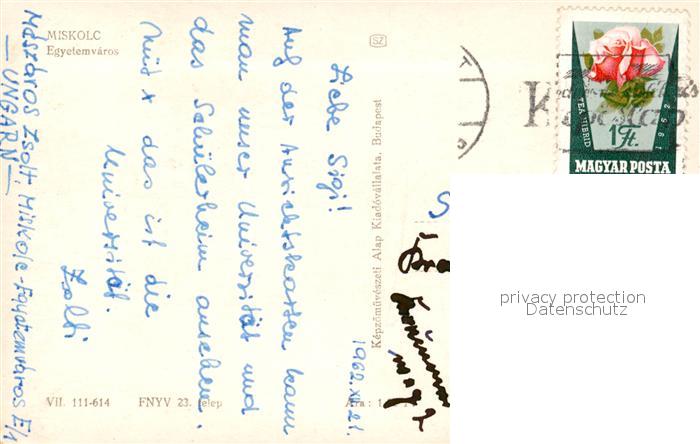 MISKOLC
Egyetemváros
Mészáros Zsolt, Miskolc-Egyetemváros E/1
— UNGARN —
Liebe Sigi!
Auf der Ansichtskarten kann
man unser Universität und
das Schülerheim ansehen.
Mit x das ist die
Universität.
Zolti
1962.XII.21.
VII. 111-614
FNYV 23. telep
Ára: 1
Képzőművészeti Alap Kiadóvállalata, Budapest
SZ
TEA HIBRID
1962
1 Ft.
MAGYAR POSTA
S
privacy protection
Datenschutz